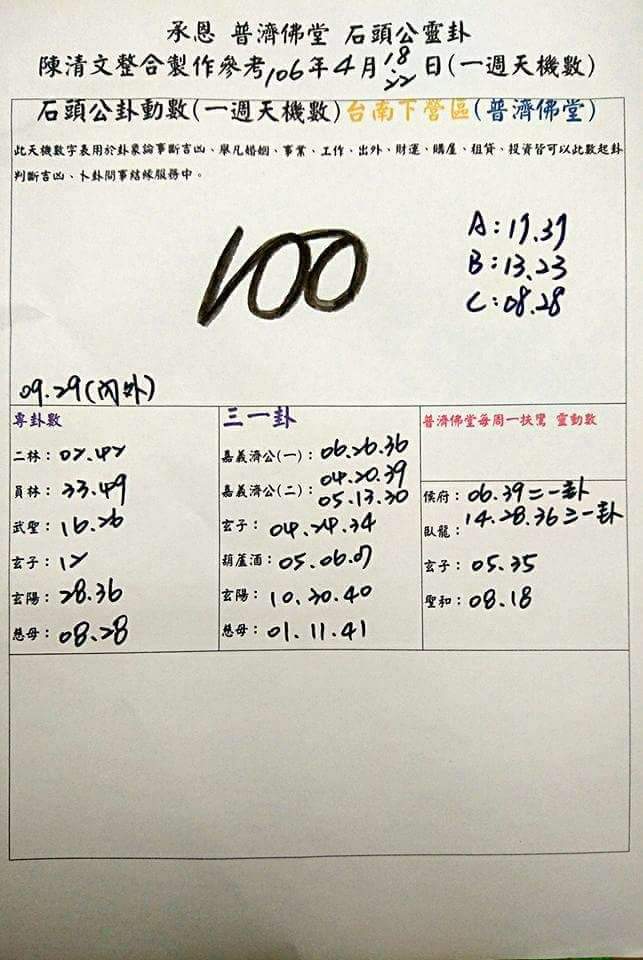 承恩 普濟佛堂 石頭公靈卦
陳清文整合製作參考106年4月18/22日(一週天機數)
石頭公卦動數(一週天機數)台南下營區(普濟佛堂)
此天機數字表用於卦象論事斷吉凶、舉凡婚姻、事業、工作、出外、財運、購屋、租貸、投資皆可以此數起卦
判斷吉凶、卜卦問事結緣服務中。
100
A:19.39
B:13.23
C:08.28
09.29(內外)
專卦數
二林:02.42
員林:33.49
武聖:16.26
玄子:12
玄陽:28.36
慈母:08.28
三一卦
嘉義濟公(一):06.26.36
嘉義濟公(二):04.20.39
05.13.30
玄子:04.24.34
葫蘆酒:05.06.07
玄陽:10.30.40
慈母:01.11.41
普濟佛堂每周一扶鸞 靈動數
侯府:06.39二一卦
臥龍:14.28.36三一卦
玄子:05.35
聖和:08.18